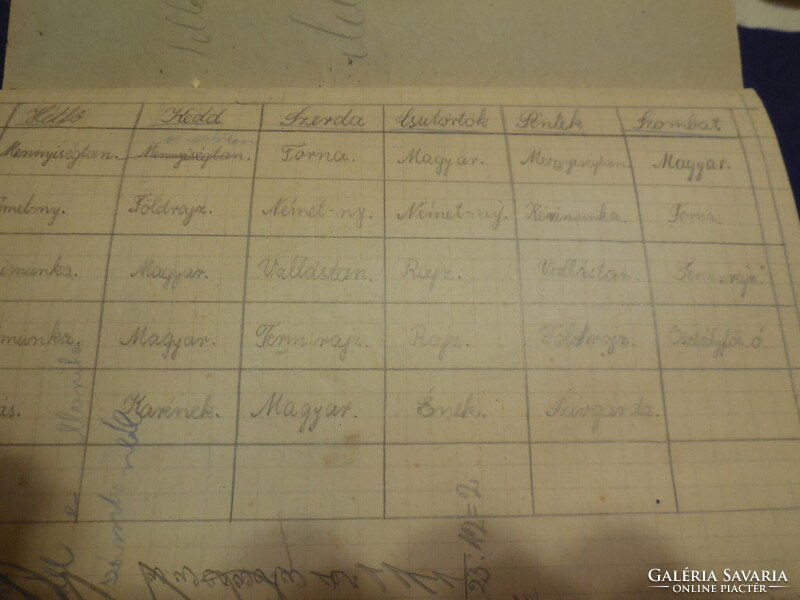 Hétfő Kedd Szerda Csütörtök Péntek Szombat
Mennyiségtan. Mennyiségtan. Torna. Magyar. Mennyiségtan Magyar.
met-ny. Földrajz. Német-ny. Német-ny. Kézimunka. Torna.
imunka. Magyar. Vallástan. Rajz. Vallástan. Term.rajz.
munka. Magyar. Term.rajz. Rajz. Földrajz. Osztályfői ó.
ás. Karének. Magyar. Ének. Szívgárda.
23:12=2
GALÉRIA SAVARIA
ONLINE PIACTÉR